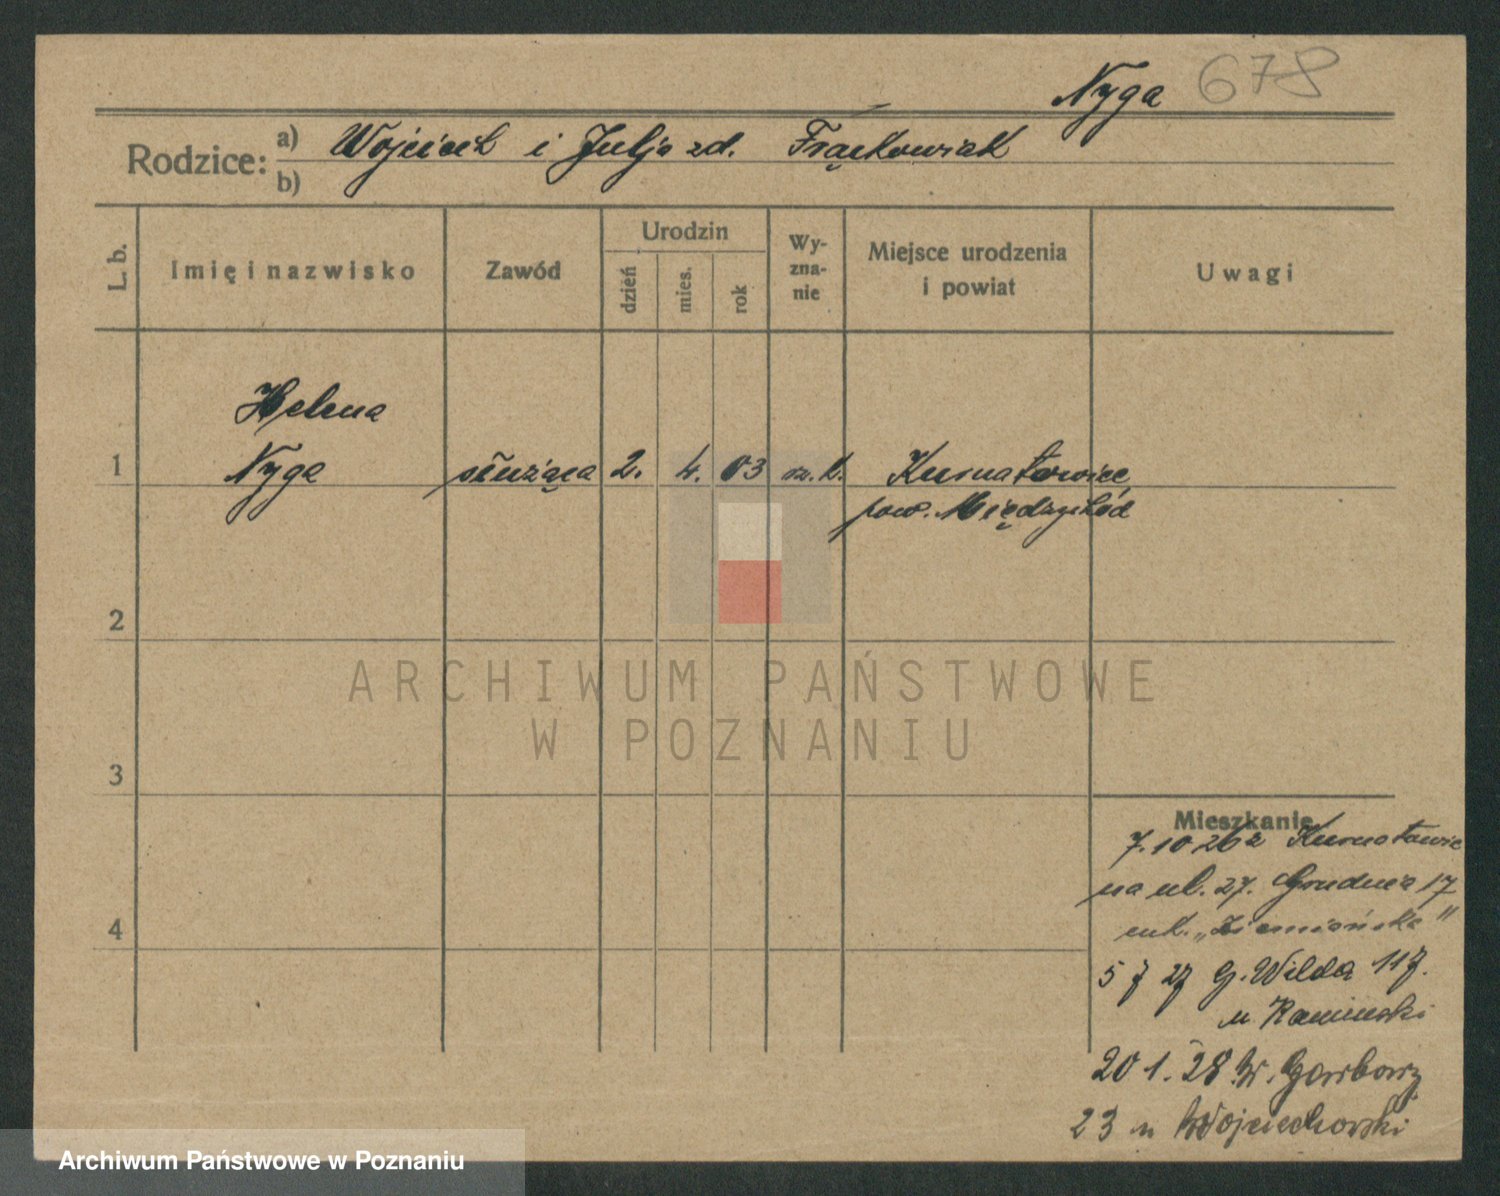 Nyga 678
Rodzice: a) Wojciech i Julja zd. Frąckowiak
b)
L. b.
Imię i nazwisko
Zawód
Urodzin
dzień
mies.
rok
Wy-
zna-
nie
Miejsce urodzenia
i powiat
Uwagi
Helena
1 Nyga służąca 2. 4. 03 rz. k. Kurnatowice
pow. Międzychód
2
3
4
Mieszkanie
7.10 26 z Kurnatowic
na ul. 27. Grudnia 17
cuk. „Ziemiańska"
5 7 27 G. Wilda 117.
u Kamieński
20 1. 28 W. Garbary
23 u Wojciechowski
ARCHIWUM PAŃSTWOWE
W POZNANIU
Archiwum Państwowe w Poznaniu